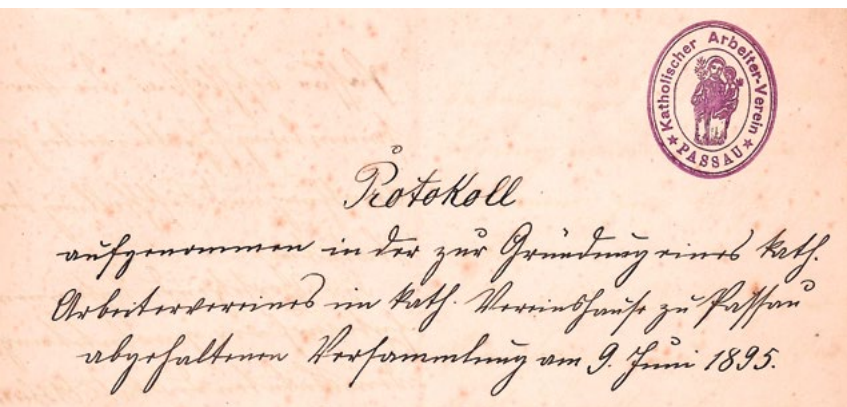 Katholischer Arbeiter-Verein
PASSAU
Protokoll
aufgenommen in der zur Gründung eines kath.
Arbeitervereines im kath. Vereinshause zu Passau
abgehaltenen Versammlung am 9. Juni 1895.